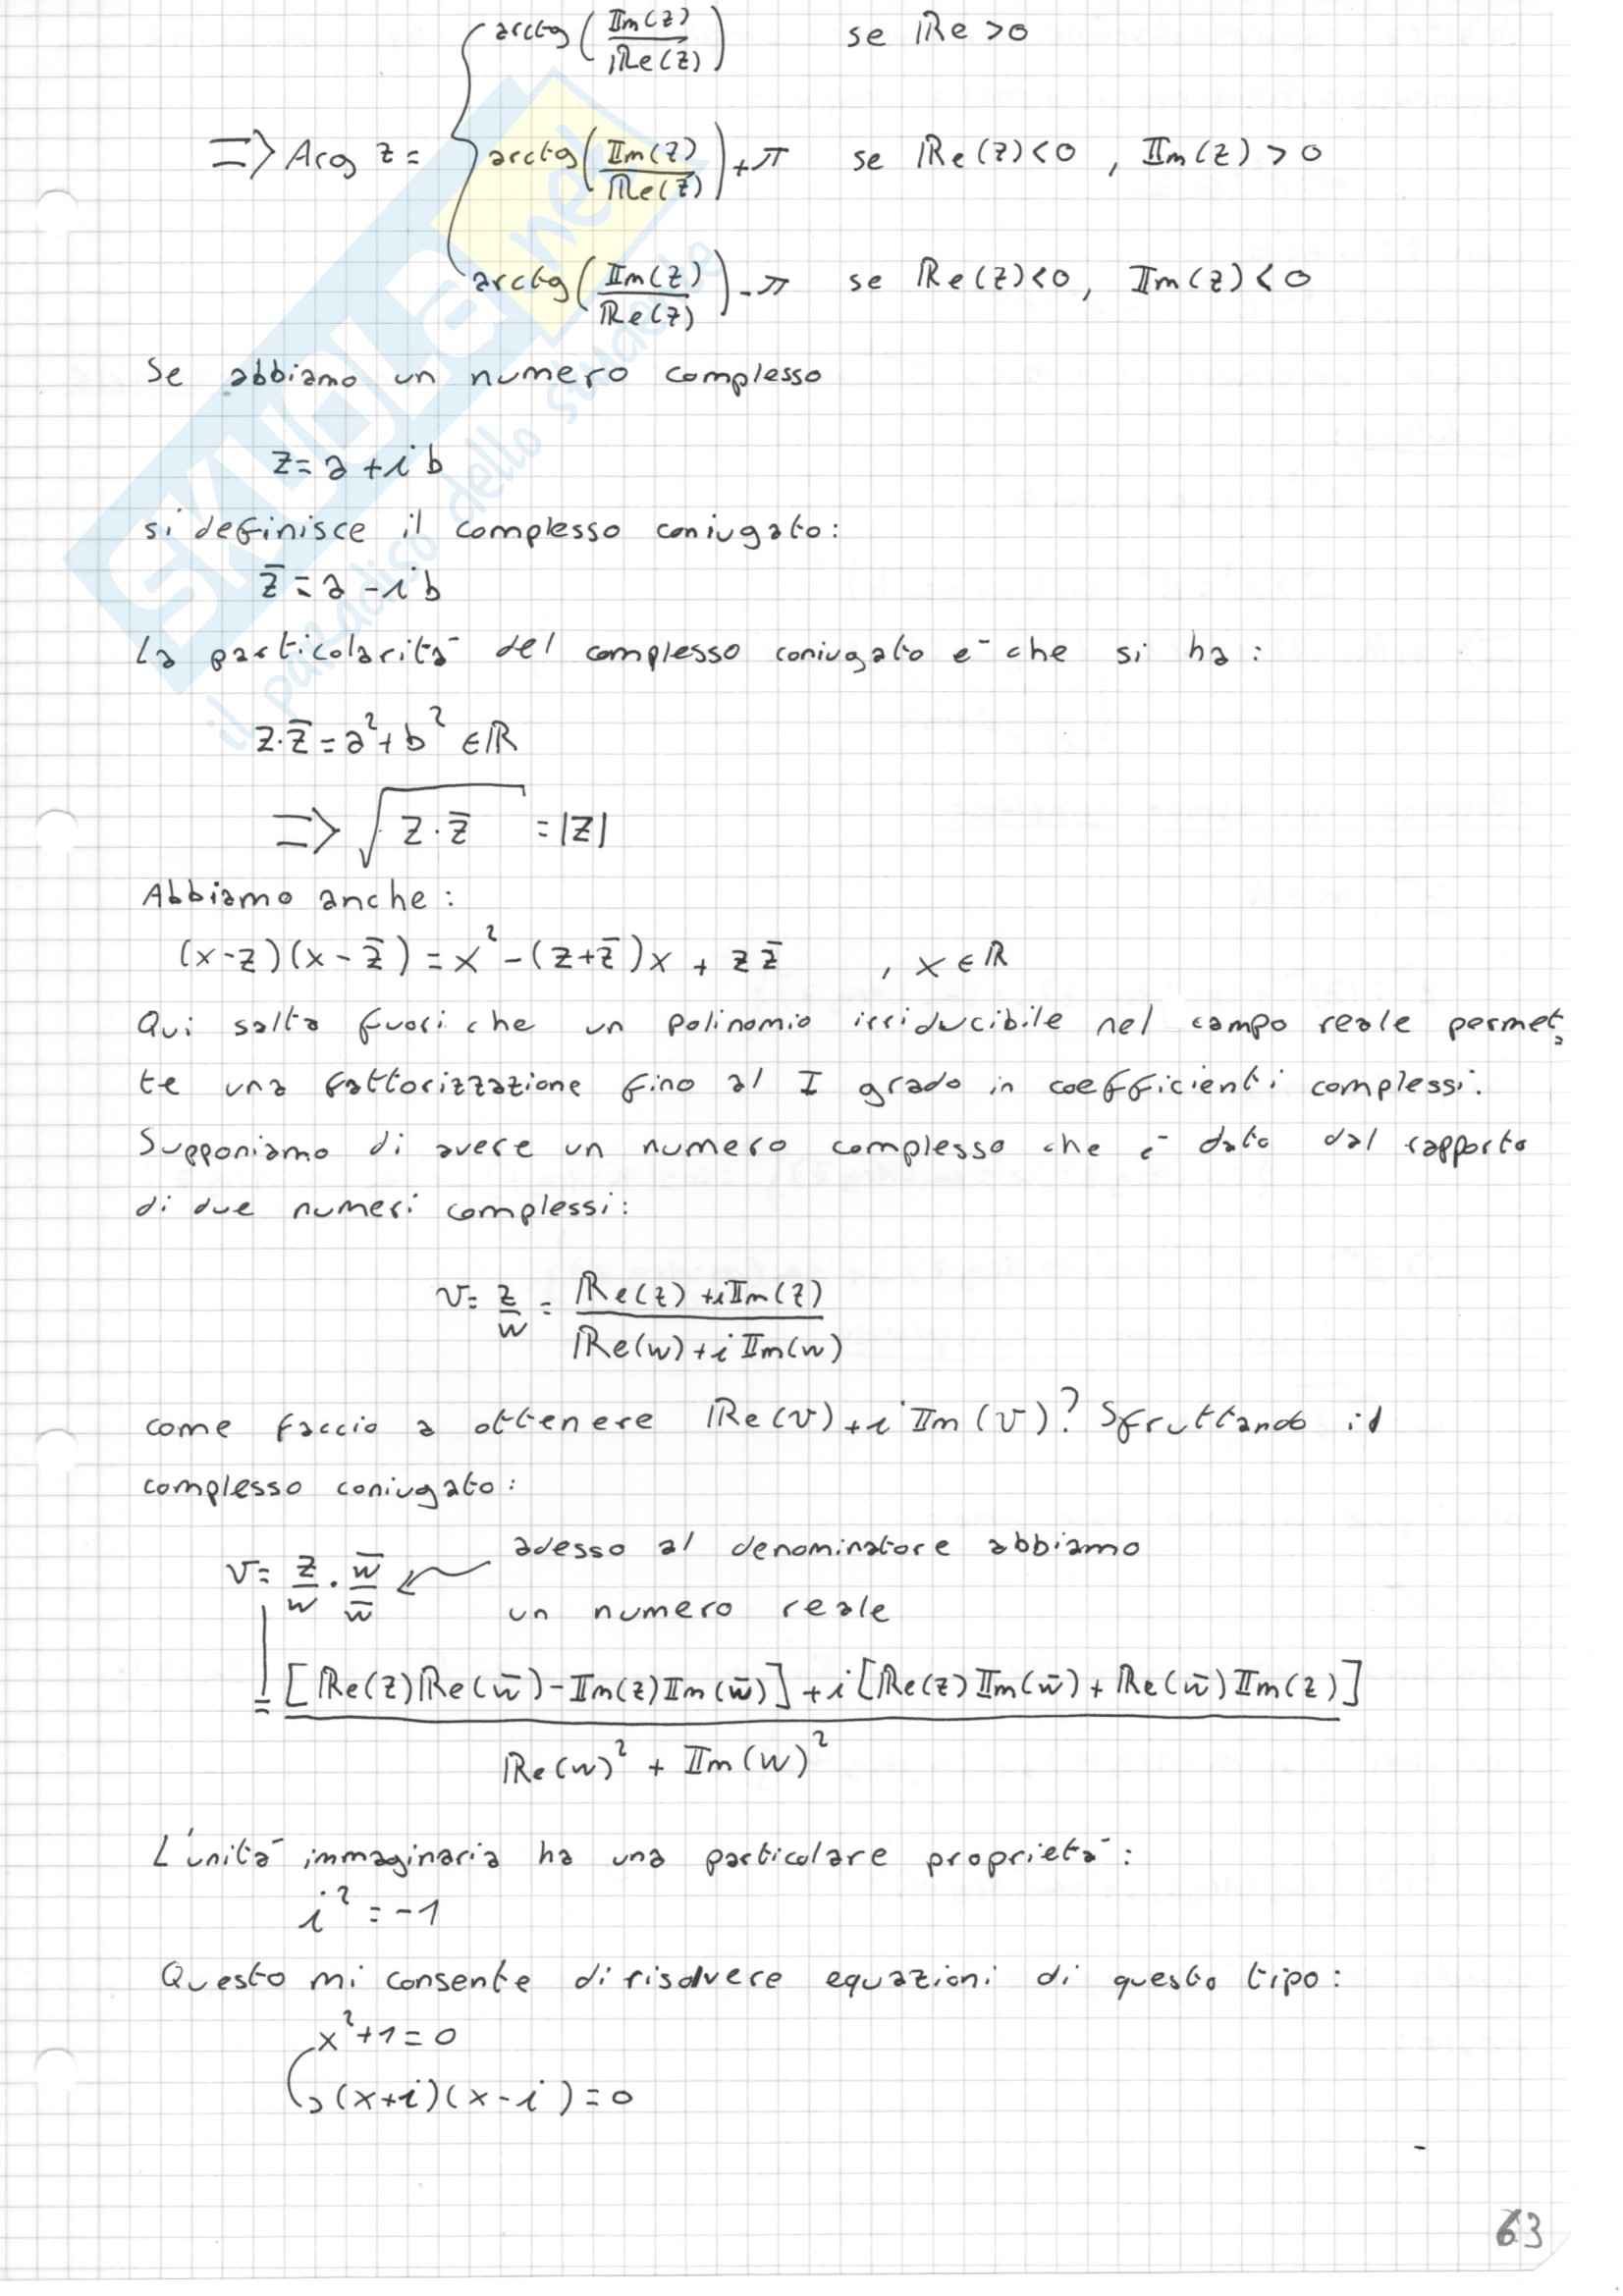 arctg(Im(z)/Re(z)) se Re>0
=> Arg z= { arctg(Im(z)/Re(z))+π se Re(z)<0 , Im(z)>0
arctg(Im(z)/Re(z))-π se Re(z)<0, Im(z)<0
Se abbiamo un numero complesso
z=a+ib
si definisce il complesso coniugato:
z̄=a-ib
La particolarità del complesso coniugato è che si ha:
z·z̄=a²+b² ∈ℝ
=> √(z·z̄) =|z|
Abbiamo anche:
(x-z)(x-z̄)=x²-(z+z̄)x+zz̄ , x∈ℝ
Qui salta fuori che un polinomio irriducibile nel campo reale permet
te una fattorizzazione fino al I grado in coefficienti complessi.
Supponiamo di avere un numero complesso che è dato dal rapporto
di due numeri complessi:
v= z/w = (Re(z)+iIm(z))/(Re(w)+iIm(w))
come faccio a ottenere Re(v)+iIm(v)? Sfruttando il
complesso coniugato:
v= z/w · w̄/w̄ adesso al denominatore abbiamo
un numero reale
= ([Re(z)Re(w̄)-Im(z)Im(w̄)]+i[Re(z)Im(w̄)+Re(w̄)Im(z)])/(Re(w)²+Im(w)²)
L'unità immaginaria ha una particolare proprietà:
i²=-1
Questo mi consente di risolvere equazioni di questo tipo:
x²+1=0
(x+i)(x-i)=0
63
SKUOLA.net
il paradiso dello studente